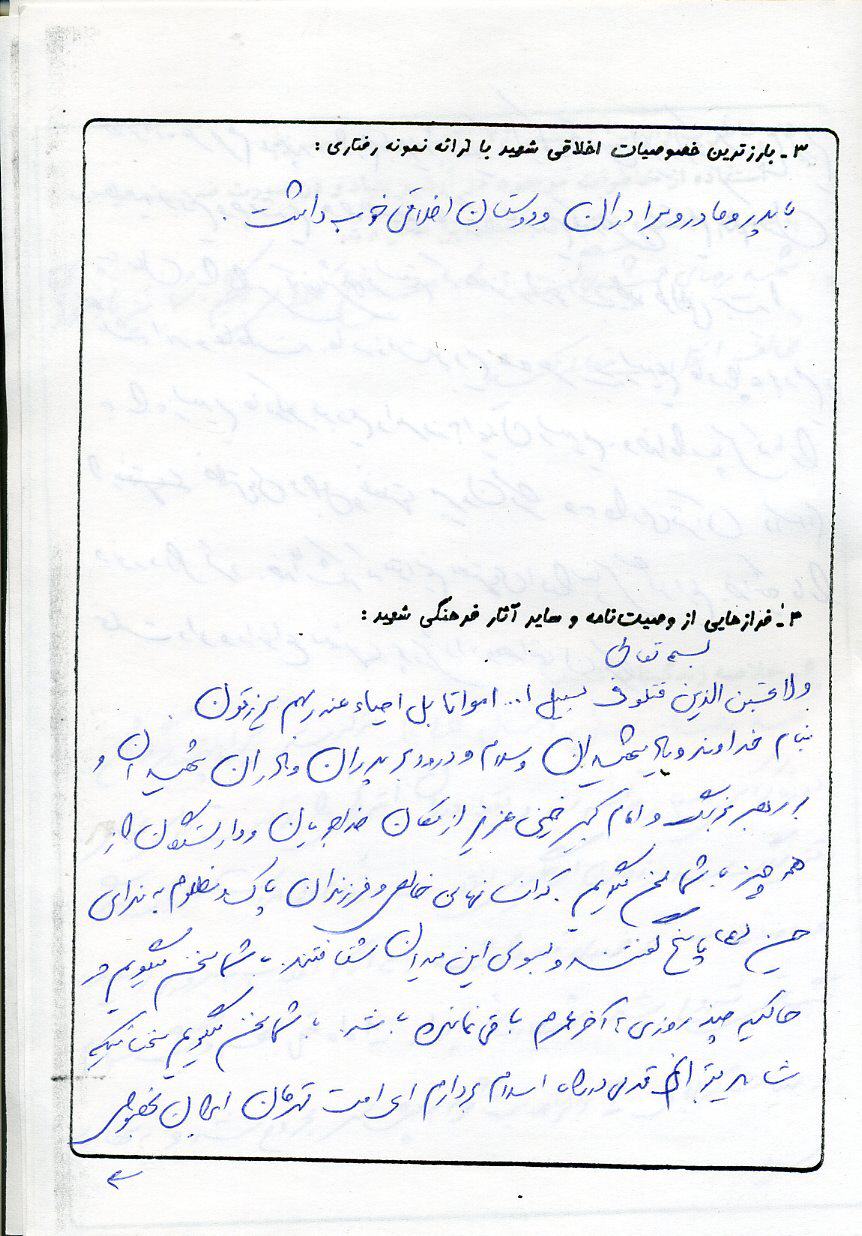 ۳ـ بارزترین خصوصیات اخلاقی شهید با ارائه نمونه رفتاری :
با پدر و مادر و برادران و دوستان اخلاقی خوب داشت .
۴ـ فرازهایی از وصیت‌نامه و سایر آثار فرهنگی شهید :
بسمه تعالی
ولا تحسبن الذین قتلوا فی سبیل ا... امواتا بل احیاء عند ربهم یرزقون .
بنام خداوند و یاد شهیدان و سلام و درود بر پدران و مادران شهیدان و
بر رهبر بزرگ و امام کبیر خمینی عزیز از مکان خداجویان و وارستگان از
همه چیز با شما سخن میگویم . کسانی خالص و فرزندان پاک و مظلوم به ندای
حسین لبیک پاسخ گفتند و بسوی این میدان شتافتند . با شما سخن میگویم در
حالیکه چند روزی از آخر عمرم باقی نمانده باشد . با شما سخن میگویم سخنانیکه
شاید بتوانم قدمی در راه اسلام بردارم ای امت قهرمان ایران بخصوص